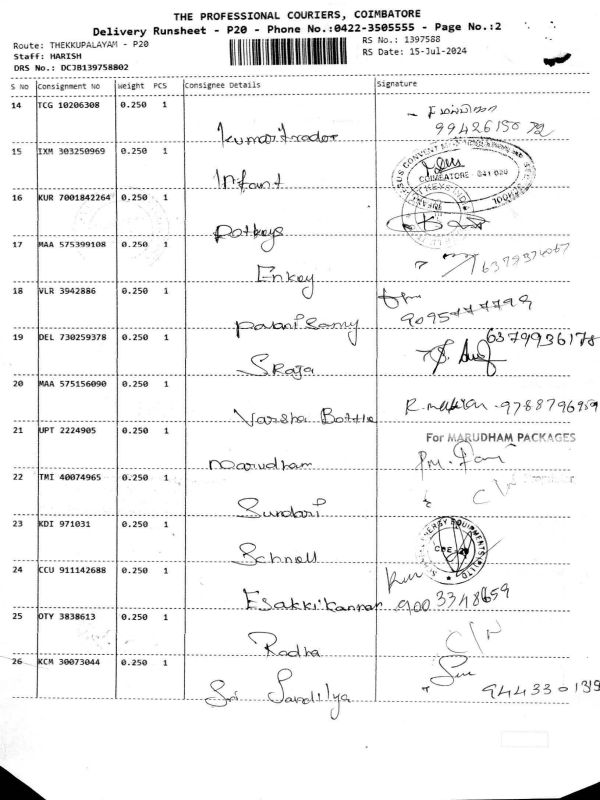 THE PROFESSIONAL COURIERS, COIMBATORE
Delivery Runsheet - P20 - Phone No.:0422-3505555 - Page No.:2
Route: THEKKUPALAYAM - P20
RS No.: 1397588
Staff: HARISH
RS Date: 15-Jul-2024
DRS No.: DCJB139758802
S No Consignment No Weight PCS Consignee Details Signature
14 TCG 10206308 0.250 1
Kumaritrader
15 IXM 303250969 0.250 1
COIMBATORE - 641 020
Infant
16 KUR 7001842264 0.250 1
Pothys
17 MAA 575399108 0.250 1
Enkey
18 VLR 3942886 0.250 1
Palanisamy
19 DEL 730259378 0.250 1
6379936178
S Raja
20 MAA 575156090 0.250 1
Varsha Bottle
9788796959
21 UPT 2224905 0.250 1
For MARUDHAM PACKAGES
Marudham
22 TMI 40074965 0.250 1
Sundari
23 KDI 971031 0.250 1
Schnell
24 CCU 911142688 0.250 1
Esakkikannan 9003348659
25 OTY 3838613 0.250 1
C/N
Radha
26 KCM 30073044 0.250 1
Sri Sandilya